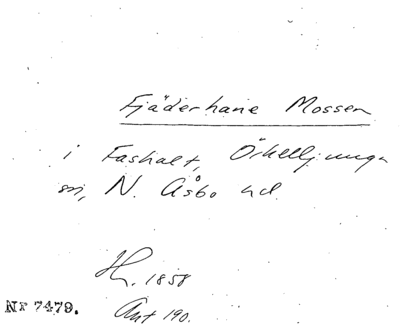 Fjäderhane Mossen
i Fashalt, Örkelljunga
sn, N. Åsbo hd.
1858
NF 7479.
Ant 190.